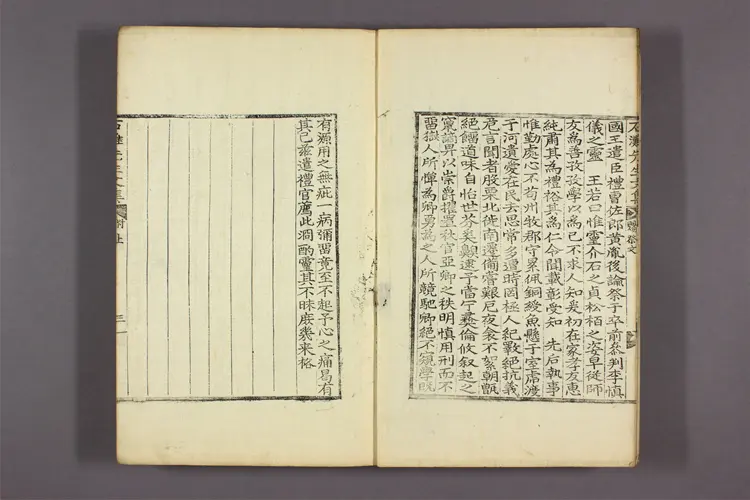 國王遣臣禮曹佐郎黃胤後諭祭于卒前叅判李愼
儀之靈 王若曰惟靈介石之貞松栢之姿早從師
友爲善孜孜學以爲己不求人知爰初在家孝友惠
純肅其爲禮裕其爲仁令聞載彰受知 先后執事
惟勤處心不苟州牧郡守累佩銅綬魚懸于室虎渡
于河遺愛在民去思常多遭時罔極人紀斁絕抗義
危言聞者股栗北徙南遷備嘗艱厄夜衾不絮朝甑
絕饎道味自怡世芬奚艱逮予當宁彜倫攸叙起之
竄謫昇以崇爵擢置秋官亞卿之秩明愼用刑而不
留獄人所憚爲卿勇爲之人所競馳卿絕不窺學旣
有源用之無疵一病彌留竟至不起予心之痛曷有
其已玆遣禮官薦此泂酌靈其不昧庶幾來格